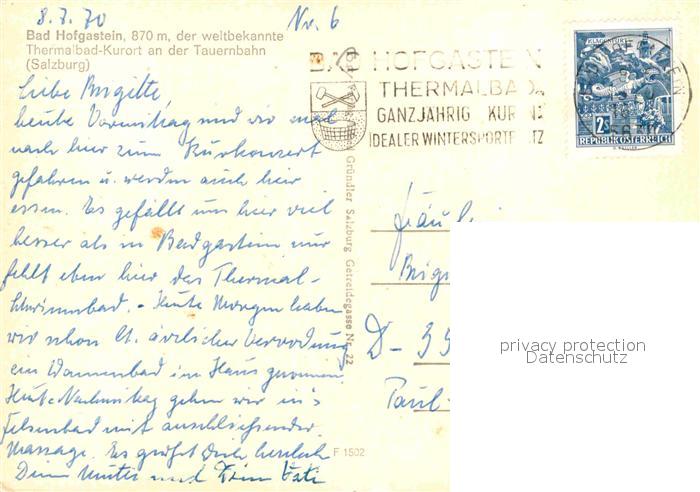 8.7.70 Nr. 6
Bad Hofgastein, 870 m, der weltbekannte
Thermalbad-Kurort an der Tauernbahn
(Salzburg)
Liebe Brigitte,
heute Vormittag sind wir mal
nach hier zum Kurkonzert
gefahren u. werden auch hier
essen. Es gefällt uns hier viel
besser als in Badgastein nur
fehlt eben hier das Thermal-
schwimmbad. - Heute Morgen haben
wir schon lt. ärztlicher Verordnung
ein Wannenbad im Haus genommen
Heute Nachmittag gehen wir in's
Felsenbad mit anschließender
Massage. Es grüßt Dich herzlich
Deine Mutti und Dein Vati
BAD HOFGASTEIN
THERMALBAD
GANZJÄHRIG KUR
IDEALER WINTERSPORTPLATZ
KLAGENFURT
2S
REPUBLIK ÖSTERREICH
Gründler Salzburg Getreidegasse Nr. 22
F 1502
Fräul
Brig
D- 35
Paul-
privacy protection
Datenschutz